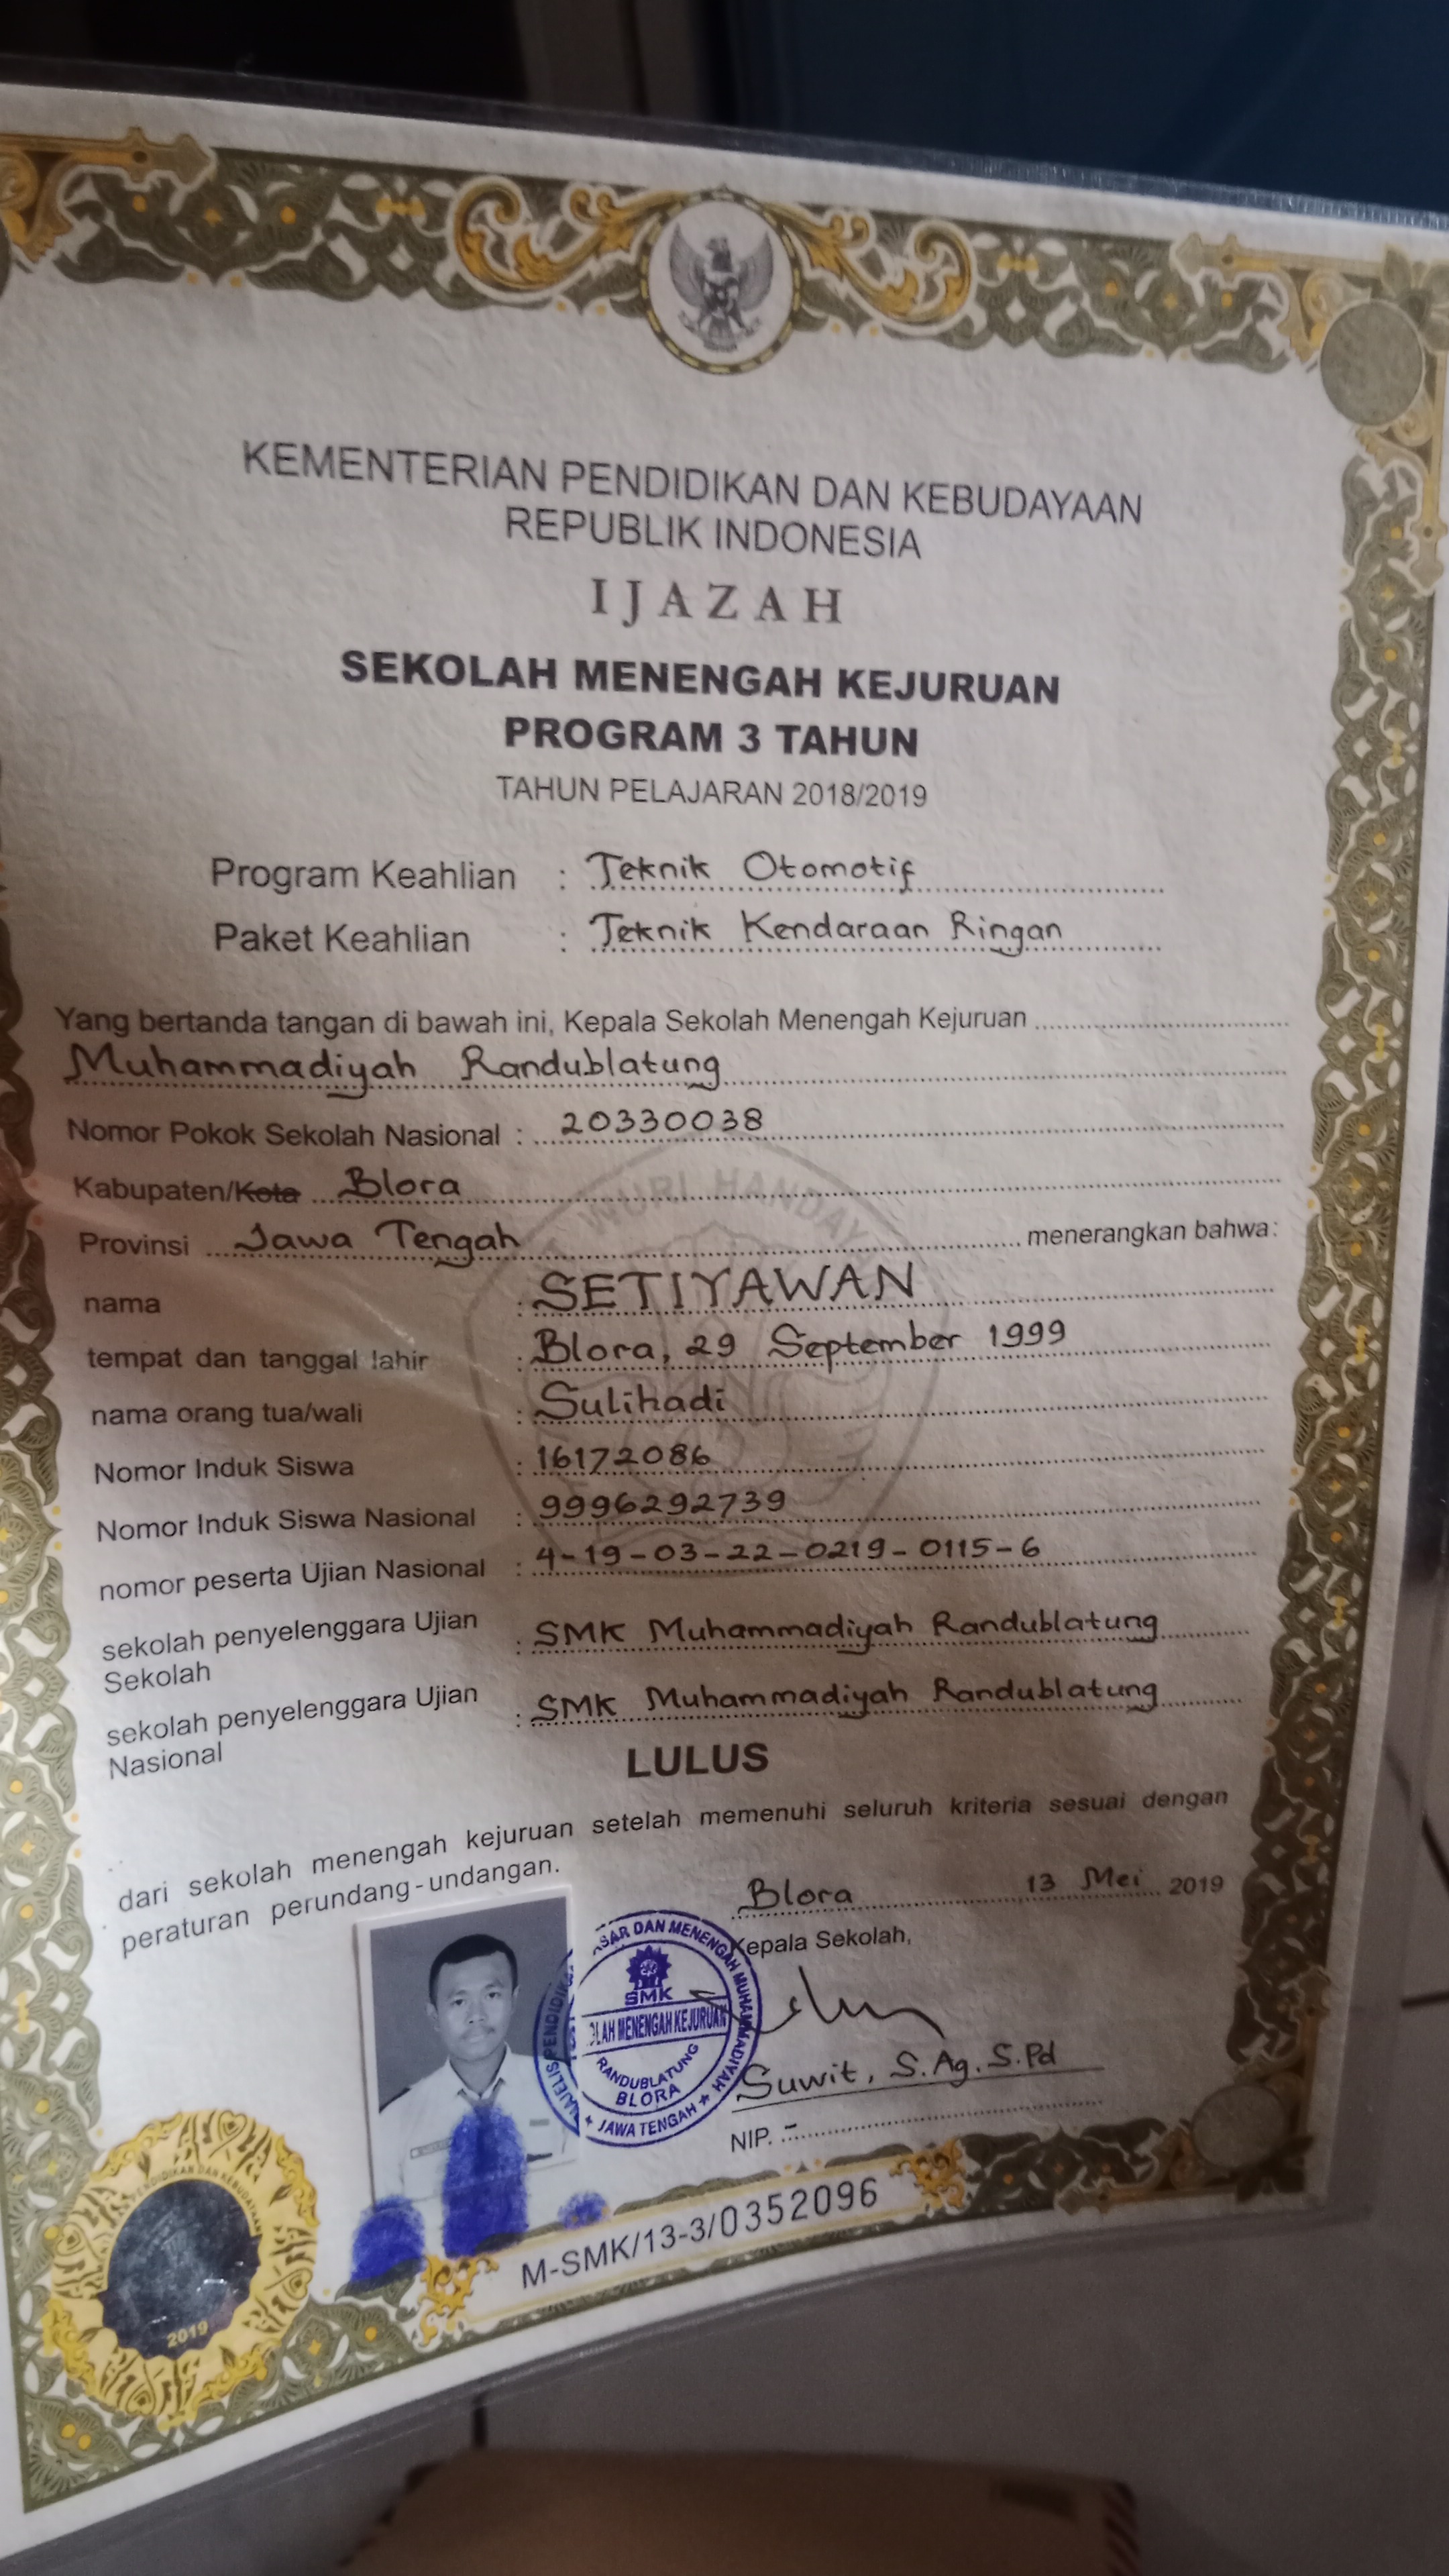 KEMENTERIAN PENDIDIKAN DAN KEBUDAYAAN
REPUBLIK INDONESIA
IJAZAH
SEKOLAH MENENGAH KEJURUAN
PROGRAM 3 TAHUN
TAHUN PELAJARAN 2018/2019
Program Keahlian : Teknik Otomotif
Paket Keahlian : Teknik Kendaraan Ringan
Yang bertanda tangan di bawah ini, Kepala Sekolah Menengah Kejuruan
Muhammadiyah Randublatung
Nomor Pokok Sekolah Nasional : 20330038
Kabupaten/Kota Blora
Provinsi Jawa Tengah menerangkan bahwa:
nama : SETIYAWAN
tempat dan tanggal lahir : Blora, 29 September 1999
nama orang tua/wali : Sulihadi
Nomor Induk Siswa : 16172086
Nomor Induk Siswa Nasional : 9996292739
nomor peserta Ujian Nasional : 4-19-03-22-0219-0115-6
sekolah penyelenggara Ujian
Sekolah : SMK Muhammadiyah Randublatung
sekolah penyelenggara Ujian
Nasional : SMK Muhammadiyah Randublatung
LULUS
dari sekolah menengah kejuruan setelah memenuhi seluruh kriteria sesuai dengan
peraturan perundang-undangan.
Blora 13 Mei 2019
Kepala Sekolah,
DAN MENENGAH MUHAMMADIYAH
SMK
MENENGAH KEJURUAN
RANDUBLATUNG
BLORA
JAWA TENGAH
Suwit, S.Ag. S.Pd
NIP. -
M-SMK/13-3/0352096
DAN KEBUDAYAAN
2019
WURI HANDAY